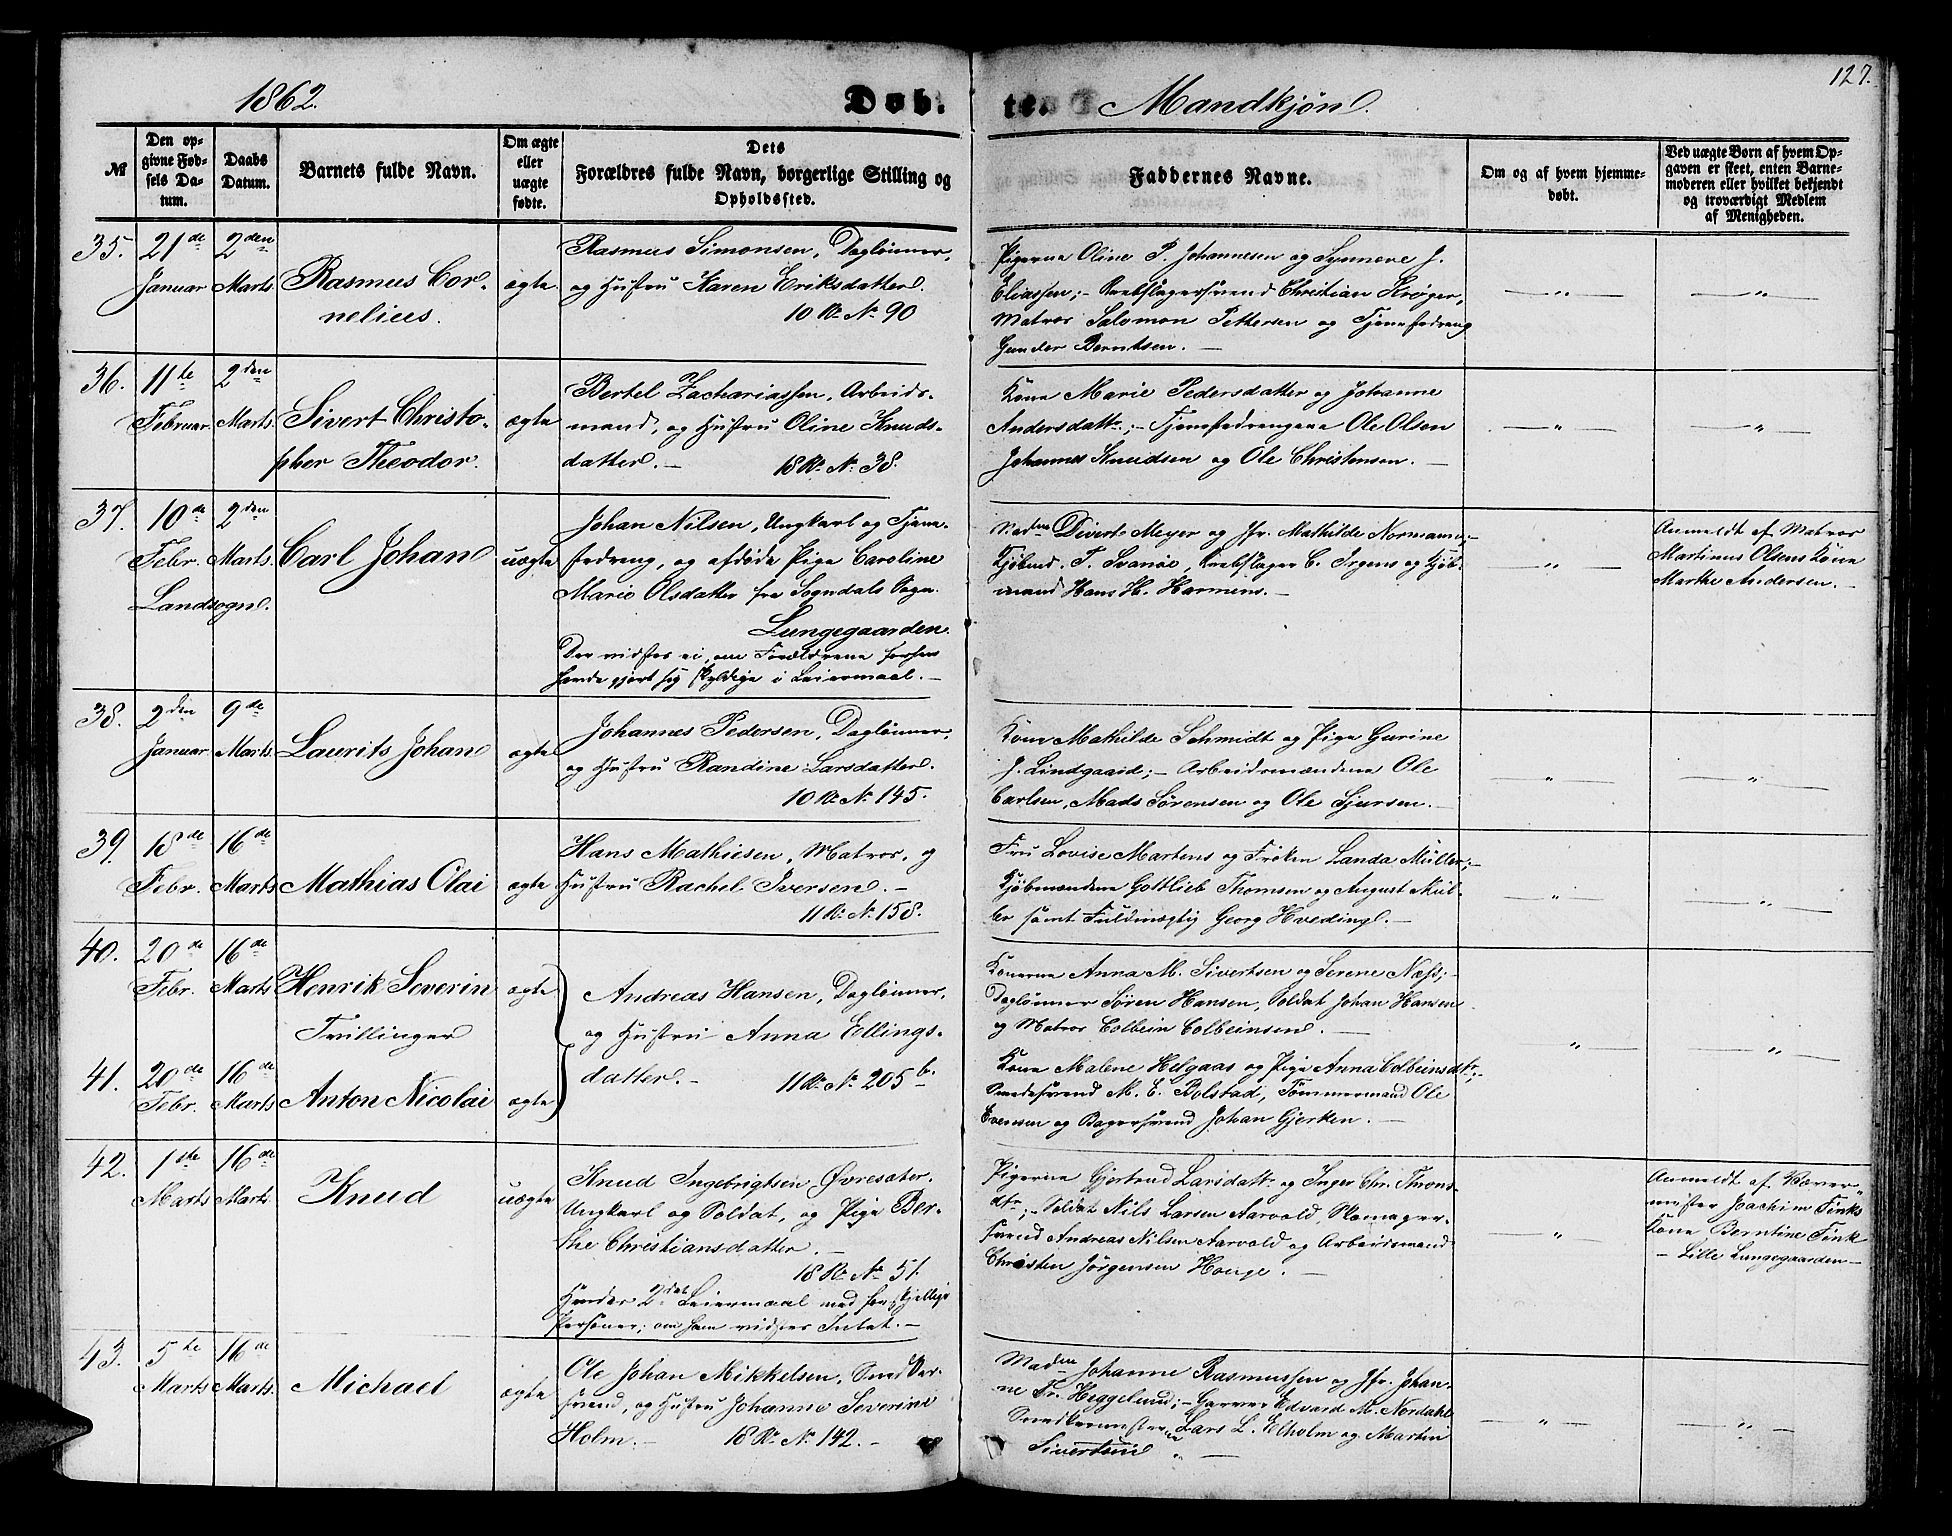 1862.
Døb-
te.
Mandkjøn.
127.
№
Den op-
givne Fød-
sels Da-
tum.
Daabs
Datum.
Barnets fulde Navn.
Om ægte
eller
uægte
fødte.
Dets
Forældres fulde Navn, borgerlige Stilling og
Opholdssted.
Faddernes Navne.
Om og af hvem hjemme-
døbt.
Ved uægte Børn af hvem Op-
gaven er skeet, enten Barne-
moderen eller hvilket bekjendt
og troværdigt Medlem
af Menigheden.
35.
21de
Januar
2den
Marts
Rasmus Cor-
nelius.
ægte
Rasmus Simonsen, Daglønner,
og Hustru Karen Eriksdatter.
10 R. N. 90
Pigerne Oline P. Johannesen og Synneve J.
Eliassen; Rebslagersvend Christian Krøger,
Matros Salomon Pettersen og Tjenestedreng
Gunder Berntsen. —
—„—
—„—
36.
11te
Februar
2den
Marts.
Sivert Christo-
pher Theodor.
ægte
Bertel Zachariassen, Arbeids-
mand, og Hustru Oline Knuds-
datter. — 18 R. N. 38.
Kone Marie Pedersdatter og Johanne
Andersdattr; Tjenestedrengene Ole Olsen
Johannes Knudsen og Ole Christensen. —
—„—
—„—
37.
10de
Febr.
Landsogn.
2den
Marts
Carl Johan
uægte
Johan Nilsen, Ungkarl og Tjene-
stedreng, og afdøde Pige Caroline
Marie Olsdatter fra Sogndals Sogn.
Lungegaarden.
Der vidstes ei, om Forældrene forhen
havde gjort sig skyldige i Leiermaal. —
Madme Divert Meyer og Jfr. Mathilde Normann;
Kjøbmd. T. Svanøe, Rebslager C. Irgens og Kjøb-
mand Hans H. Harmens. —
—„—
Anmeldt af Matros
Martinus Olsens Kone
Marthe Andersen. —
38.
2den
Januar
9de
Marts.
Laurits Johan
ægte
Johannes Pedersen, Daglønner,
og Hustru Randine Larsdatter.
10 R. N. 145.
Kone Mathilde Schmidt og Pige Gurine
J. Lindgaard; Arbeidsmændene Ole
Carlsen, Mads Sørensen og Ole Sjursen. —
—„—
—„—
39
18de
Febr.
16de
Marts
Mathias Olai
ægte
Hans Mathiesen, Matros, og
Hustru Rachel Iversen. —
11 R. N. 158.
Fru Lovise Martens og Frøken Landa Müller;
Kjøbmændene Gottlieb Thomsen og August Mül-
ler samt Fuldmægtig Georg Hveding. —
—„—
—„—
40.
20de
Febr.
16de
Marts
Henrik Severin
Tvillinger
ægte
Andreas Hansen, Daglønner,
og Hustru Anna Ellings-
datter. — 11 R. N. 205 b.
Konerne Anna M. Sivertsen og Serene Næss;
Daglønner Søren Hansen, Soldat Johan Hansen
og Matros Colbein Colbeinsen. —
—„—
—„—
41.
20de
Febr.
16de
Marts
Anton Nicolai
ægte
Kone Malene Helgaas og Pige Anna Colbeinsdtr.;
Smedesvend M. E. Bolstad, Tømmermand Ole
Evensen og Bagersvend Johan Gjerken. —
42.
1ste
Marts
16de
Marts
Knud
uægte
Knud Ingebrigtsen Øvresæter,
Ungkarl og Soldat, og Pige Ber-
the Christiansdatter. —
18 R. N. 51.
Hendes 2det Leiermaal med forskjellige
Personer; om ham vidstes Intet. —
Pigerne Gjertrud Larsdattr. og Inger Chr. Throns-
dtr; Soldat Nils Larsen Aarvold, Skomager-
svend Andreas Nilsen Aarvold og Arbeidsmand
Christen Jørgensen Houge. —
—„—
Anmeldt af
mester Joachim Finks
Kone Berntine Fink
— Lille Lungegaarden —
43.
5te
Marts
16de
Marts.
Michael
ægte
Ole Johan Mikkelsen, Snedker-
svend, og Hustru Johanne Severine
Holm. — 18 R. N. 142. —
Madme Johanne Rasmussen og Jfr. Johan-
ne Fr. Heggelund; Garver Edvard M. Nordahl
Snedkermester Lars L. Elholm og Martin
Sivertsen „ —
—„—
—„—